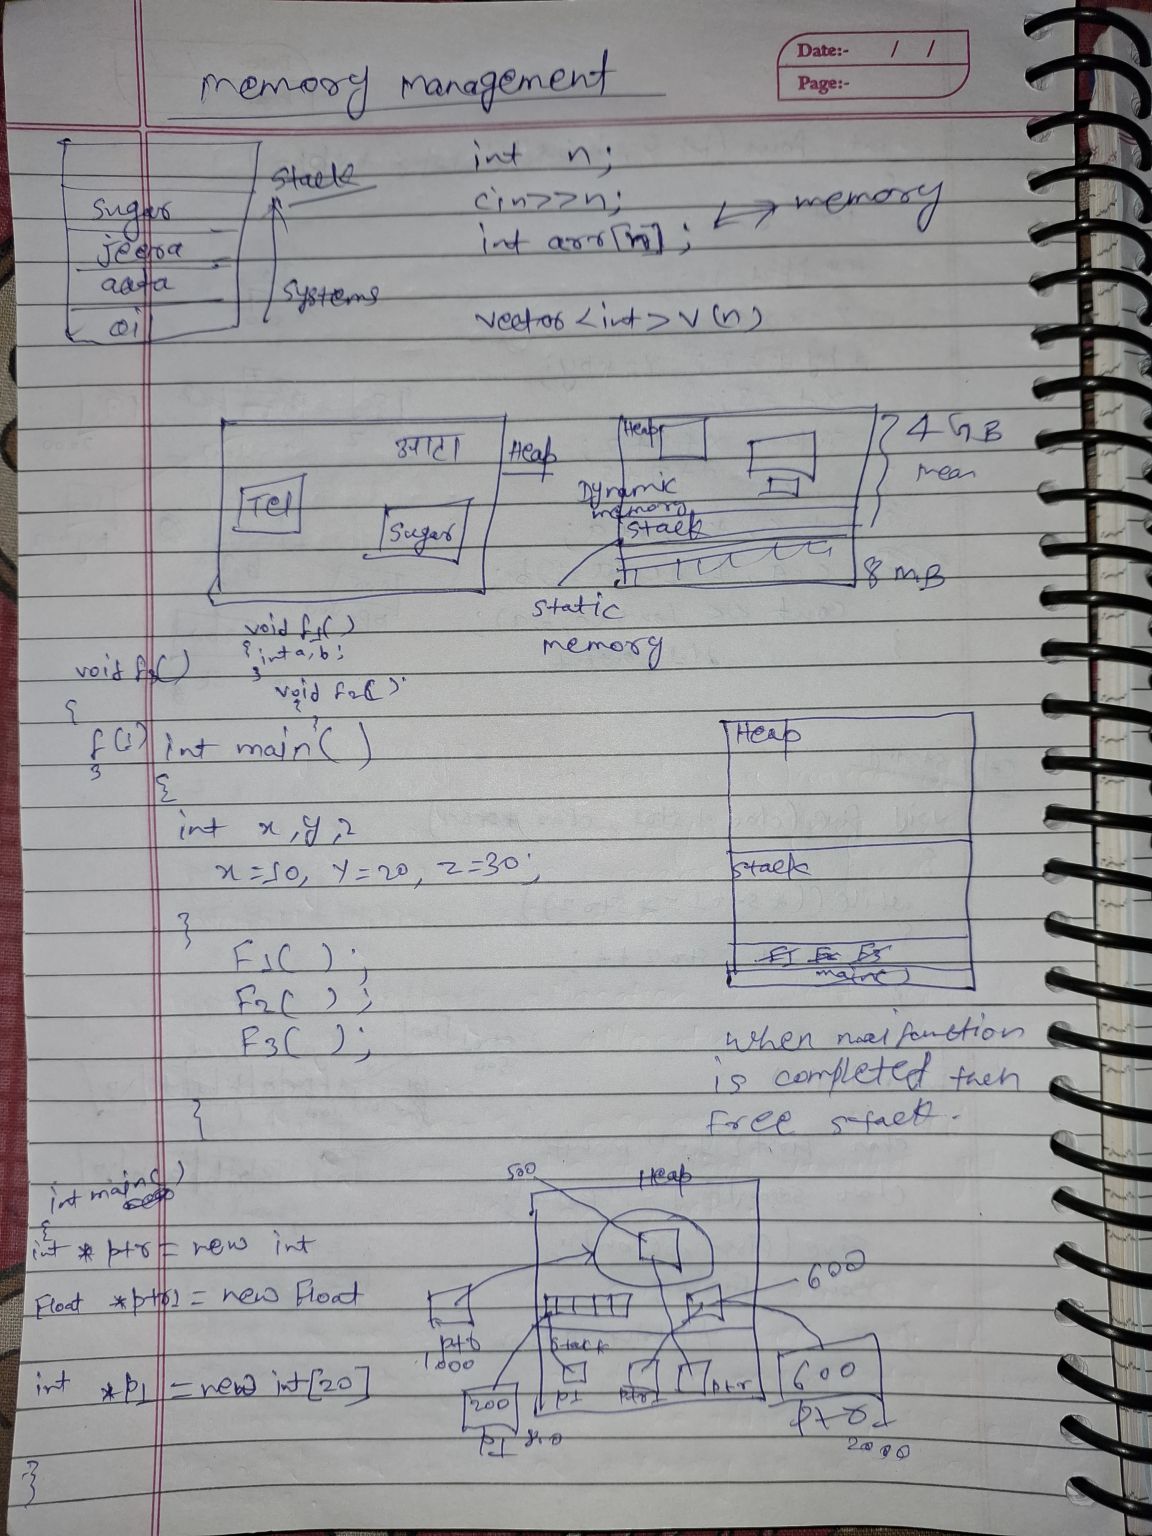 Date:- / /
Page:-
memory management
Stack
sugar
jeera
aata
oil
systems
int n;
cin>>n;
int arr[n];
memory
vector<int> v(n)
आटा
Tel
Sugar
Heap
Heap
Dynamic
memory
Stack
4 GB
8 MB
static
memory
void f1()
{ int a,b;
}
void f2()
{
}
void f3()
{
f()
}
int main()
{
int x,y,z
x=10, y=20, z=30;
}
F1();
F2();
F3();
}
Heap
Stack
F1 F2 F3
main()
when main function
is completed then
free stack.
int main()
{
int * ptr = new int
Float *ptr1 = new Float
int *p1 = new int[20]
}
500
Heap
600
ptr
1000
Stack
p1
ptr1
ptr
200
p1
600
ptr1
2000